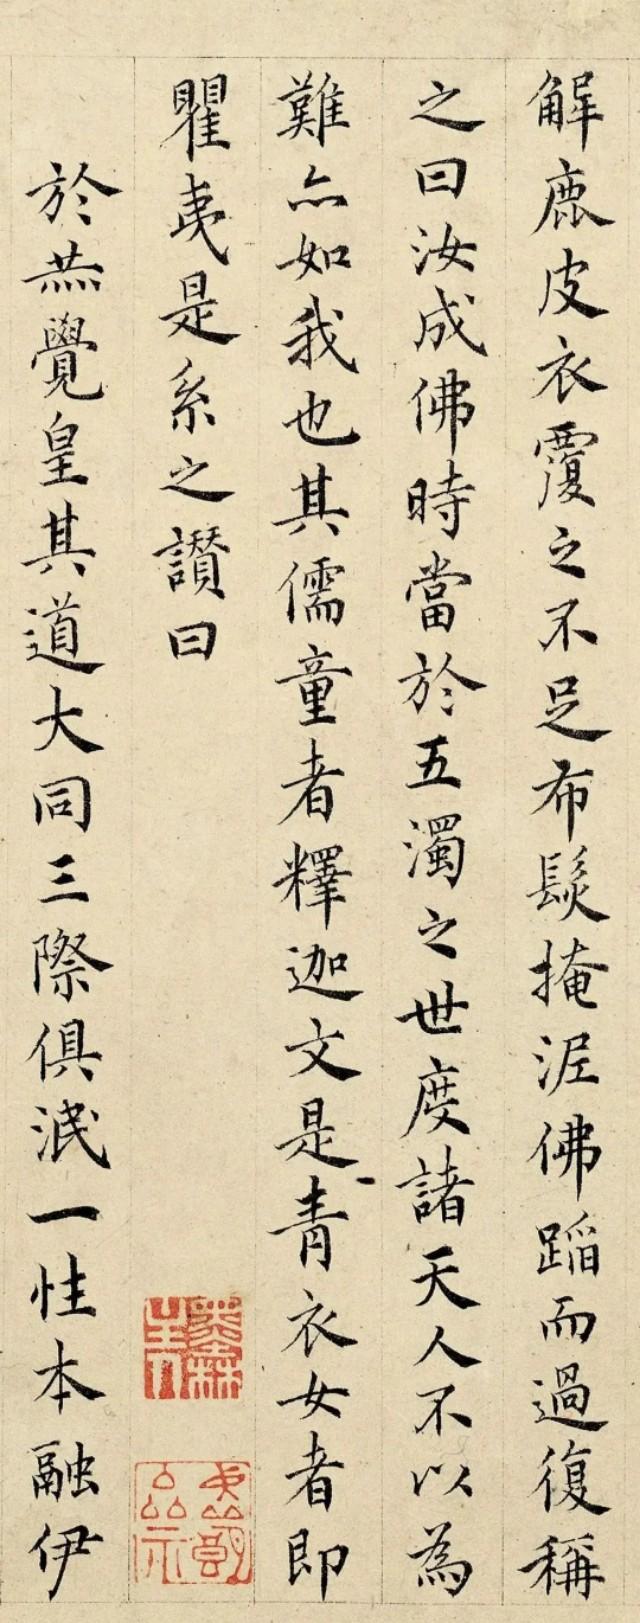 解鹿皮衣覆之不足布髮掩泥佛蹈而過復稱
之曰汝成佛時當於五濁之世度諸天人不以為
難亦如我也其儒童者釋迦文是青衣女者即
瞿夷是系之讚曰
於赫覺皇其道大同三際俱泯一性本融伊